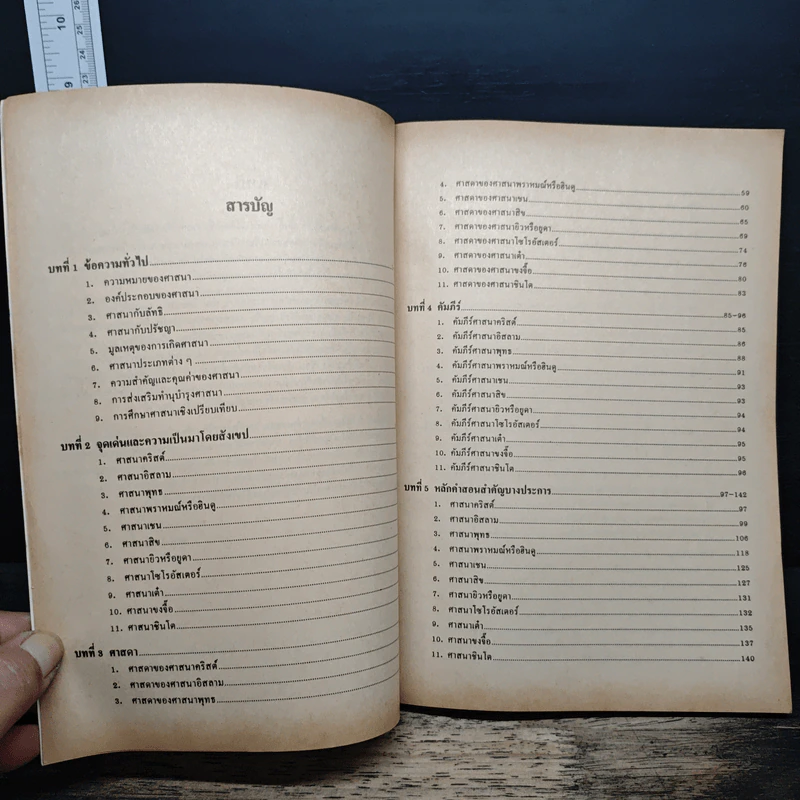 10
26
25
24
9
23
สารบัญ
บทที่ 1 ข้อความทั่วไป
1. ความหมายของศาสนา
2. องค์ประกอบของศาสนา
3. ศาสนากับลัทธิ
4. ศาสนากับปรัชญา
5. มูลเหตุของการเกิดศาสนา
6. ศาสนาประเภทต่าง ๆ
7. ความสำคัญและคุณค่าของศาสนา
8. การส่งเสริมทำนุบำรุงศาสนา
9. การศึกษาศาสนาเชิงเปรียบเทียบ
บทที่ 2 จุดเด่นและความเป็นมาโดยสังเขป
1. ศาสนาคริสต์
2. ศาสนาอิสลาม
3. ศาสนาพุทธ
4. ศาสนาพราหมณ์หรือฮินดู
5. ศาสนาเชน
6. ศาสนาสิข
7. ศาสนายิวหรือยูดา
8. ศาสนาโซโรอัสเตอร์
9. ศาสนาเต๋า
10. ศาสนาขงจื้อ
11. ศาสนาชินโต
บทที่ 3 ศาสดา
1. ศาสดาของศาสนาคริสต์
2. ศาสดาของศาสนาอิสลาม
3. ศาสดาของศาสนาพุทธ
4. ศาสดาของศาสนาพราหมณ์หรือฮินดู 59
5. ศาสดาของศาสนาเชน 60
6. ศาสดาของศาสนาสิข 65
7. ศาสดาของศาสนายิวหรือยูดา 69
8. ศาสดาของศาสนาโซโรอัสเตอร์ 74
9. ศาสดาของศาสนาเต๋า 76
10. ศาสดาของศาสนาขงจื้อ 80
11. ศาสดาของศาสนาชินโต 83
บทที่ 4 คัมภีร์ 85-96
1. คัมภีร์ศาสนาคริสต์ 85
2. คัมภีร์ศาสนาอิสลาม 86
3. คัมภีร์ศาสนาพุทธ 88
4. คัมภีร์ศาสนาพราหมณ์หรือฮินดู 91
5. คัมภีร์ศาสนาเชน 93
6. คัมภีร์ศาสนาสิข 93
7. คัมภีร์ศาสนายิวหรือยูดา 94
8. คัมภีร์ศาสนาโซโรอัสเตอร์ 94
9. คัมภีร์ศาสนาเต๋า 95
10. คัมภีร์ศาสนาขงจื้อ 95
11. คัมภีร์ศาสนาชินโต 96
บทที่ 5 หลักคำสอนสำคัญบางประการ 97-142
1. ศาสนาคริสต์ 97
2. ศาสนาอิสลาม 99
3. ศาสนาพุทธ 106
4. ศาสนาพราหมณ์หรือฮินดู 118
5. ศาสนาเชน 125
6. ศาสนาสิข 127
7. ศาสนายิวหรือยูดา 131
8. ศาสนาโซโรอัสเตอร์ 132
9. ศาสนาเต๋า 135
10. ศาสนาขงจื้อ 137
11. ศาสนาชินโต 140